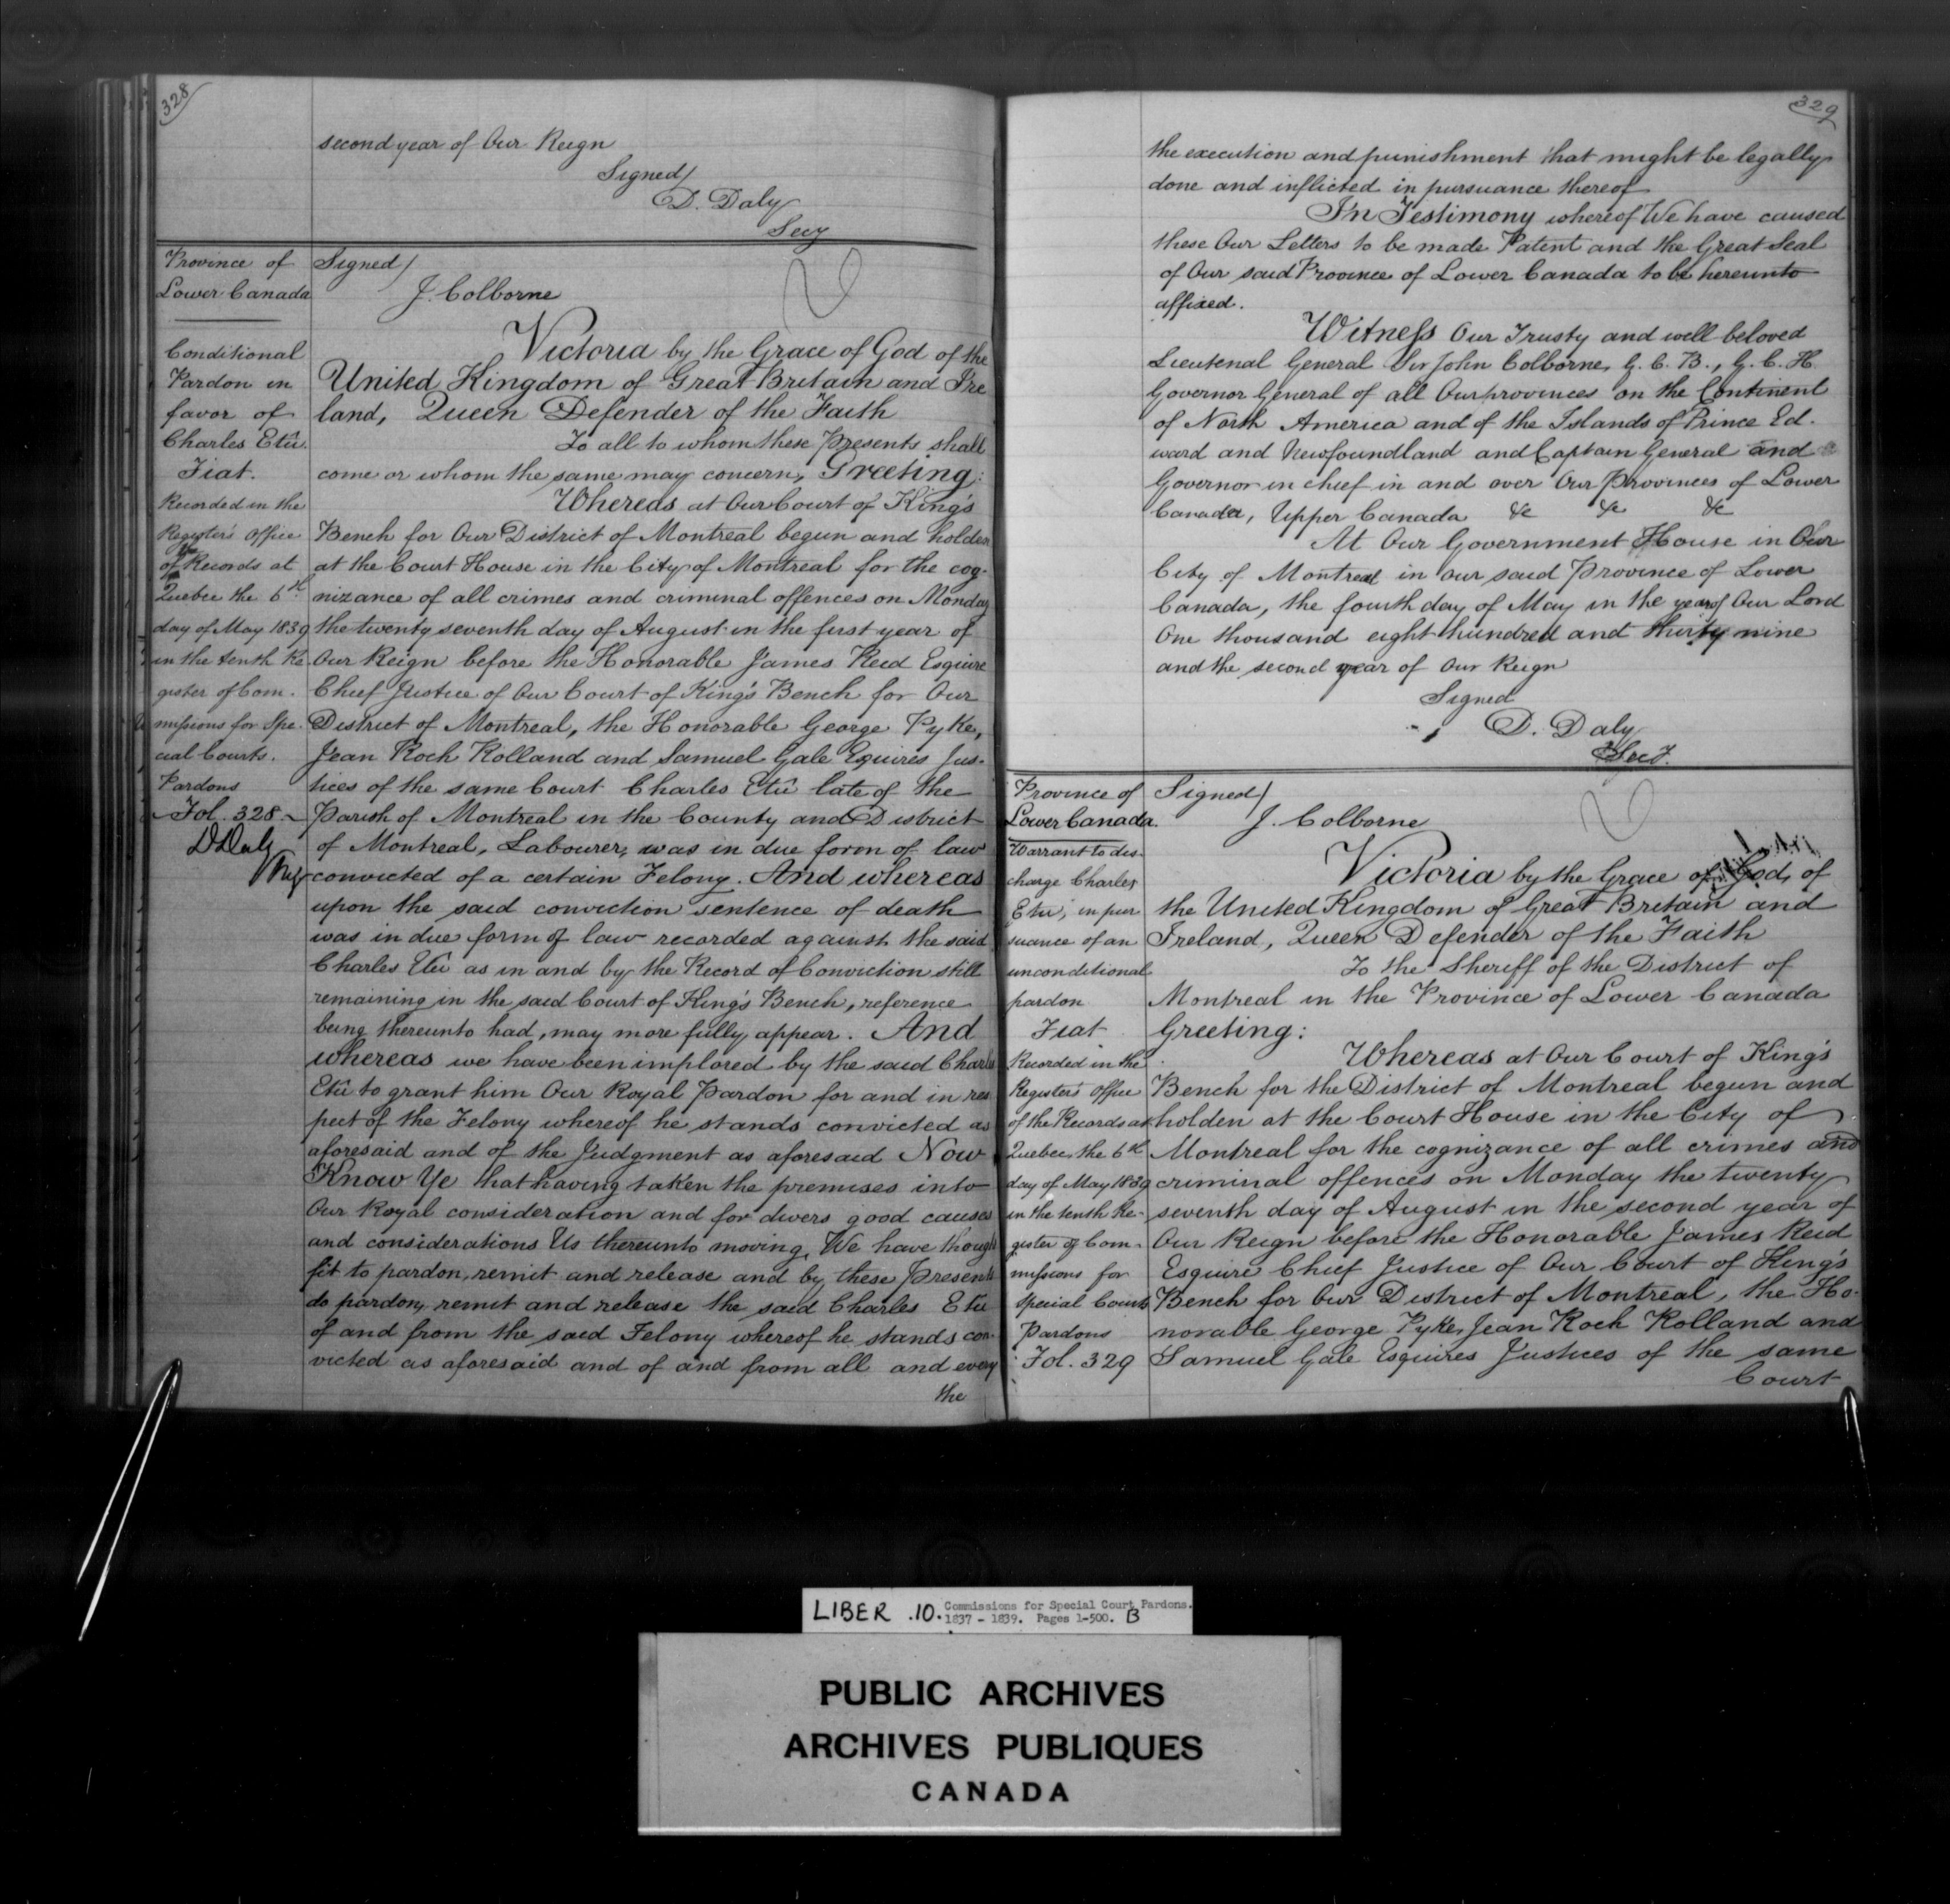 328
second year of Our Reign
Signed/
D. Daly
Secy
Province of
Lower Canada
Conditional
Pardon in
favor of
Charles Etû.
Fiat.
Recorded in the
Register's Office
of the Records at
Quebec the 6th
day of May 1839
in the tenth Re
gister of Com-
missions for Spe-
cial Courts.
Pardons
Fol. 328
D Daly
Regr
Signed/
J. Colborne
Victoria by the Grace of God of the
United Kingdom of Great Britain and Ire
land, Queen Defender of the Faith
To all to whom these Presents shall
come or whom the same may concern, Greeting:
Whereas at Our Court of King's
Bench for Our District of Montreal begun and holden
at the Court House in the City of Montreal for the cog-
nizance of all crimes and criminal offences on Monday
the twenty seventh day of August in the first year of
Our Reign before the Honorable James Reid Esquire
Chief Justice of Our Court of King's Bench for Our
District of Montreal, the Honorable George Pyke,
Jean Roch Rolland and Samuel Gale Equires Jus-
tices of the same Court Charles Etû late of the
Parish of Montreal in the County and District
of Montreal, Labourer, was in due form of law
convicted of a certain Felony. And whereas
upon the said conviction sentence of death
was in due form of law recorded against the said
Charles Etû as in and by the Record of Conviction still
remaining in the said Court of King's Bench, reference
being thereunto had, may more fully appear. And
whereas we have been implored by the said Charles
Etû to grant him Our Royal Pardon for and in res
pect of the Felony whereof he stands convicted as
aforesaid and of the Judgment as aforesaid Now
Know Ye that having taken the premises into
Our Royal consideration and for divers good causes
and considerations Us thereunto moving, We have thought
fit to pardon, remit and release and by these Presents
do pardon, remit and release the said Charles Etû
of and from the said Felony whereof he stands con-
victed as aforesaid and of and from all and every
the
329
the execution and punishment that might be legally
done and inflicted in pursuance thereof
In Testimony whereof We have caused
these Our Letters to be made Patent and the Great Seal
of Our said Province of Lower Canada to be hereunto
affixed.
Witness Our Trusty and well beloved
Lieutenal General Sir John Colborne, G. C. B., G. C. H.
Governor General of all Our provinces on the Continent
of North America and of the Islands of Prince Ed-
ward and Newfoundland and Captain General and
Governor in chief in and over Our Provinces of Lower
Canada, Upper Canada &c &c &c
At Our Government House in Our
City of Montreal in our said Province of Lower
Canada, the fourth day of May in the year of Our Lord
One thousand eight hundred and thirty nine
and the second year of Our Reign
Signed
D. Daly
Secy.
Province of
Lower Canada.
Warrant to dis-
charge Charles
Etû, in pur
suance of an
unconditional
pardon
Fiat
Recorded in the
Register's Office
of the Records at
Quebec, the 6th
day of May 1839
in the tenth Re-
gister of Com-
missions for
Special Courts
Pardons
Fol. 329
Signed/
J. Colborne
Victoria by the Grace of God, of
the United Kingdom of Great Britain and
Ireland, Queen Defender of the Faith
To the Sheriff of the District of
Montreal in the Province of Lower Canada
Greeting:
Whereas at Our Court of King's
Bench for the District of Montreal begun and
holden at the Court House in the City of
Montreal for the cognizance of all crimes and
criminal offences on Monday the twenty
seventh day of August in the second year of
Our Reign before the Honorable James Reid
Esquire Chief Justice of Our Court of King's
Bench for Our District of Montreal, the Ho-
norable George Pyke, Jean Roch Rolland and
Samuel Gale Esquires Justices of the same
Court
LIBER .10. Commissions for Special Court Pardons.
1837 - 1839. Pages 1-500. B
PUBLIC ARCHIVES
ARCHIVES PUBLIQUES
CANADA